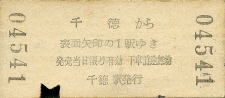 千徳から
表面矢印の1駅ゆき
発売当日限り有効 下車前途無効
千徳駅発行
04541
04541